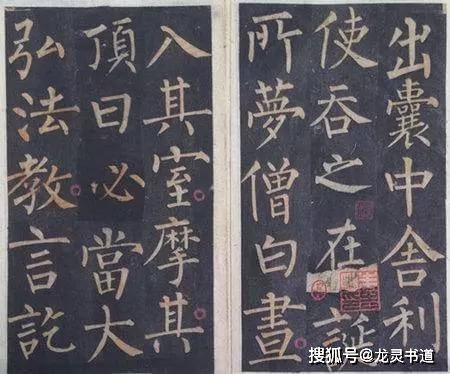 出囊中舍利
使吞之在誕
所夢僧白晝
入其室摩其
頂曰必當大
弘法教言訖
搜狐号@龙灵书道